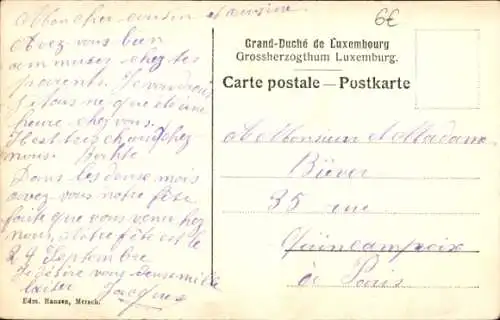 Mon cher cousin et cousine.
Avez vous bien
chez tes
parents. Je voudrais
que de une
heure chez vous.
Il est très chaud chez
nous.
Dans les douse mois
avez vous notre fête
faite que vous venez chez
nous, notre fête est le
29 Septembre
Je désire vous deuse mille
baiser Jacques
Edm. Hansen, Mersch.
6€
Grand-Duché de Luxembourg
Grossherzogthum Luxemburg.
Carte postale — Postkarte
A Monsieur et Madame
Biever
35 rue
Quincampoix
à Paris